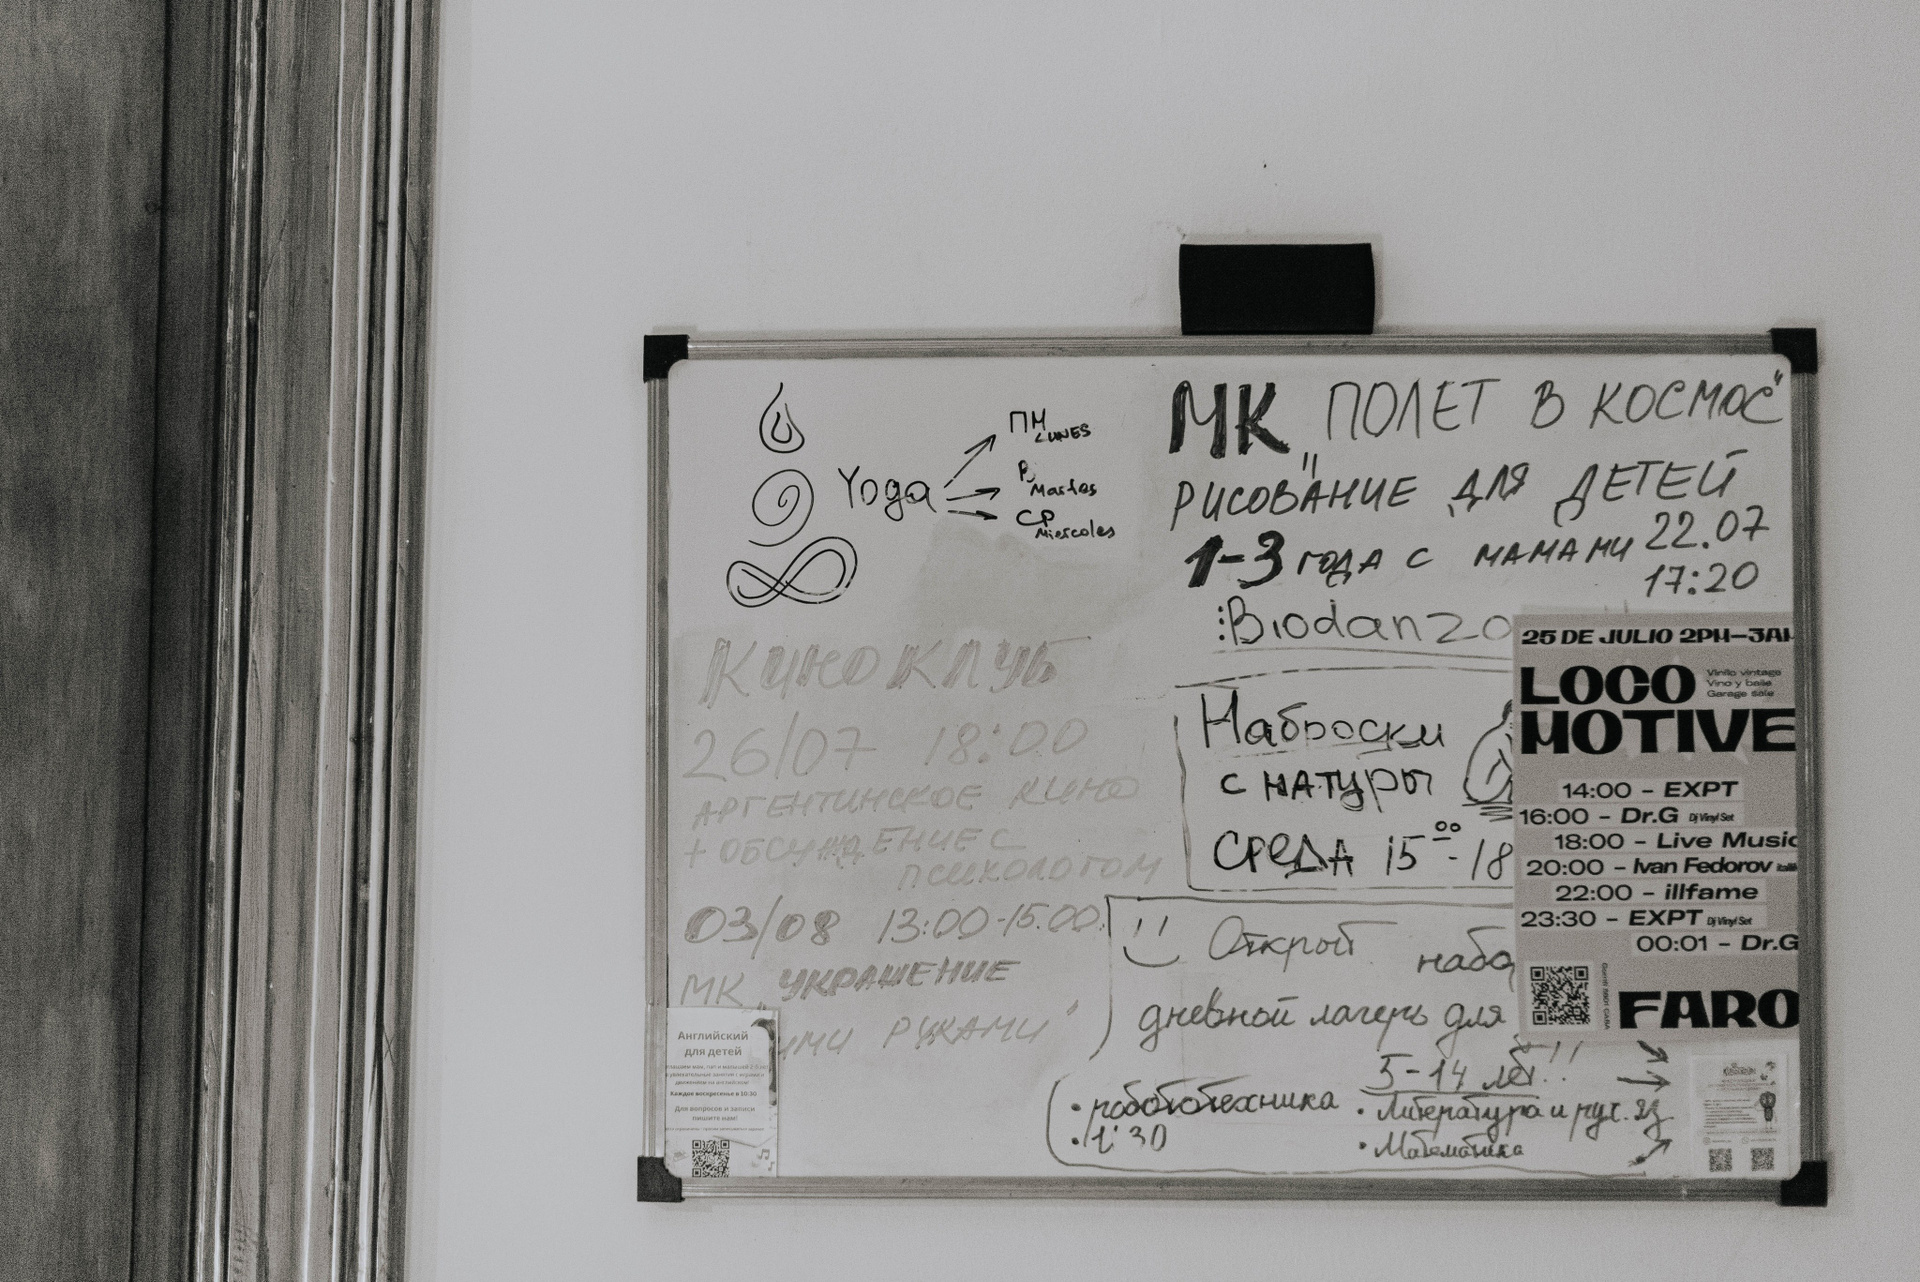 Yoga
ПН
LUNES
Martes
СР
Miercoles
МК „ПОЛЕТ В КОСМОС"
РИСОВАНИЕ ДЛЯ ДЕТЕЙ
1-3 ГОДА С МАМАМИ 22.07
17:20
КИНОКЛУБ
26/07 18:00
АРГЕНТИНСКОЕ КИНО
+ ОБСУЖДЕНИЕ С
ПСИХОЛОГОМ
03/08 13:00-15.00
МК „УКРАШЕНИЕ
РУКАМИ"
Английский
для детей
Каждое воскресенье в 10:30
Для вопросов и записи
пишите нам!
:Biodanz
Наброски
с натуры
СРЕДА 15⁰⁰-18
Открыт
дневной лагерь для
5-14 лет!!
• робототехника
• Литература и рус.
• Математика
25 DE JULIO 2PM–3AM
LOCO
MOTIVE
Vinilo vintage
Vino y baile
Garage sale
14:00 – EXPT
16:00 – Dr.G Dj Vinyl Set
18:00 – Live Music
20:00 – Ivan Fedorov
22:00 – illfame
23:30 – EXPT Dj Vinyl Set
00:01 – Dr.G
FARO